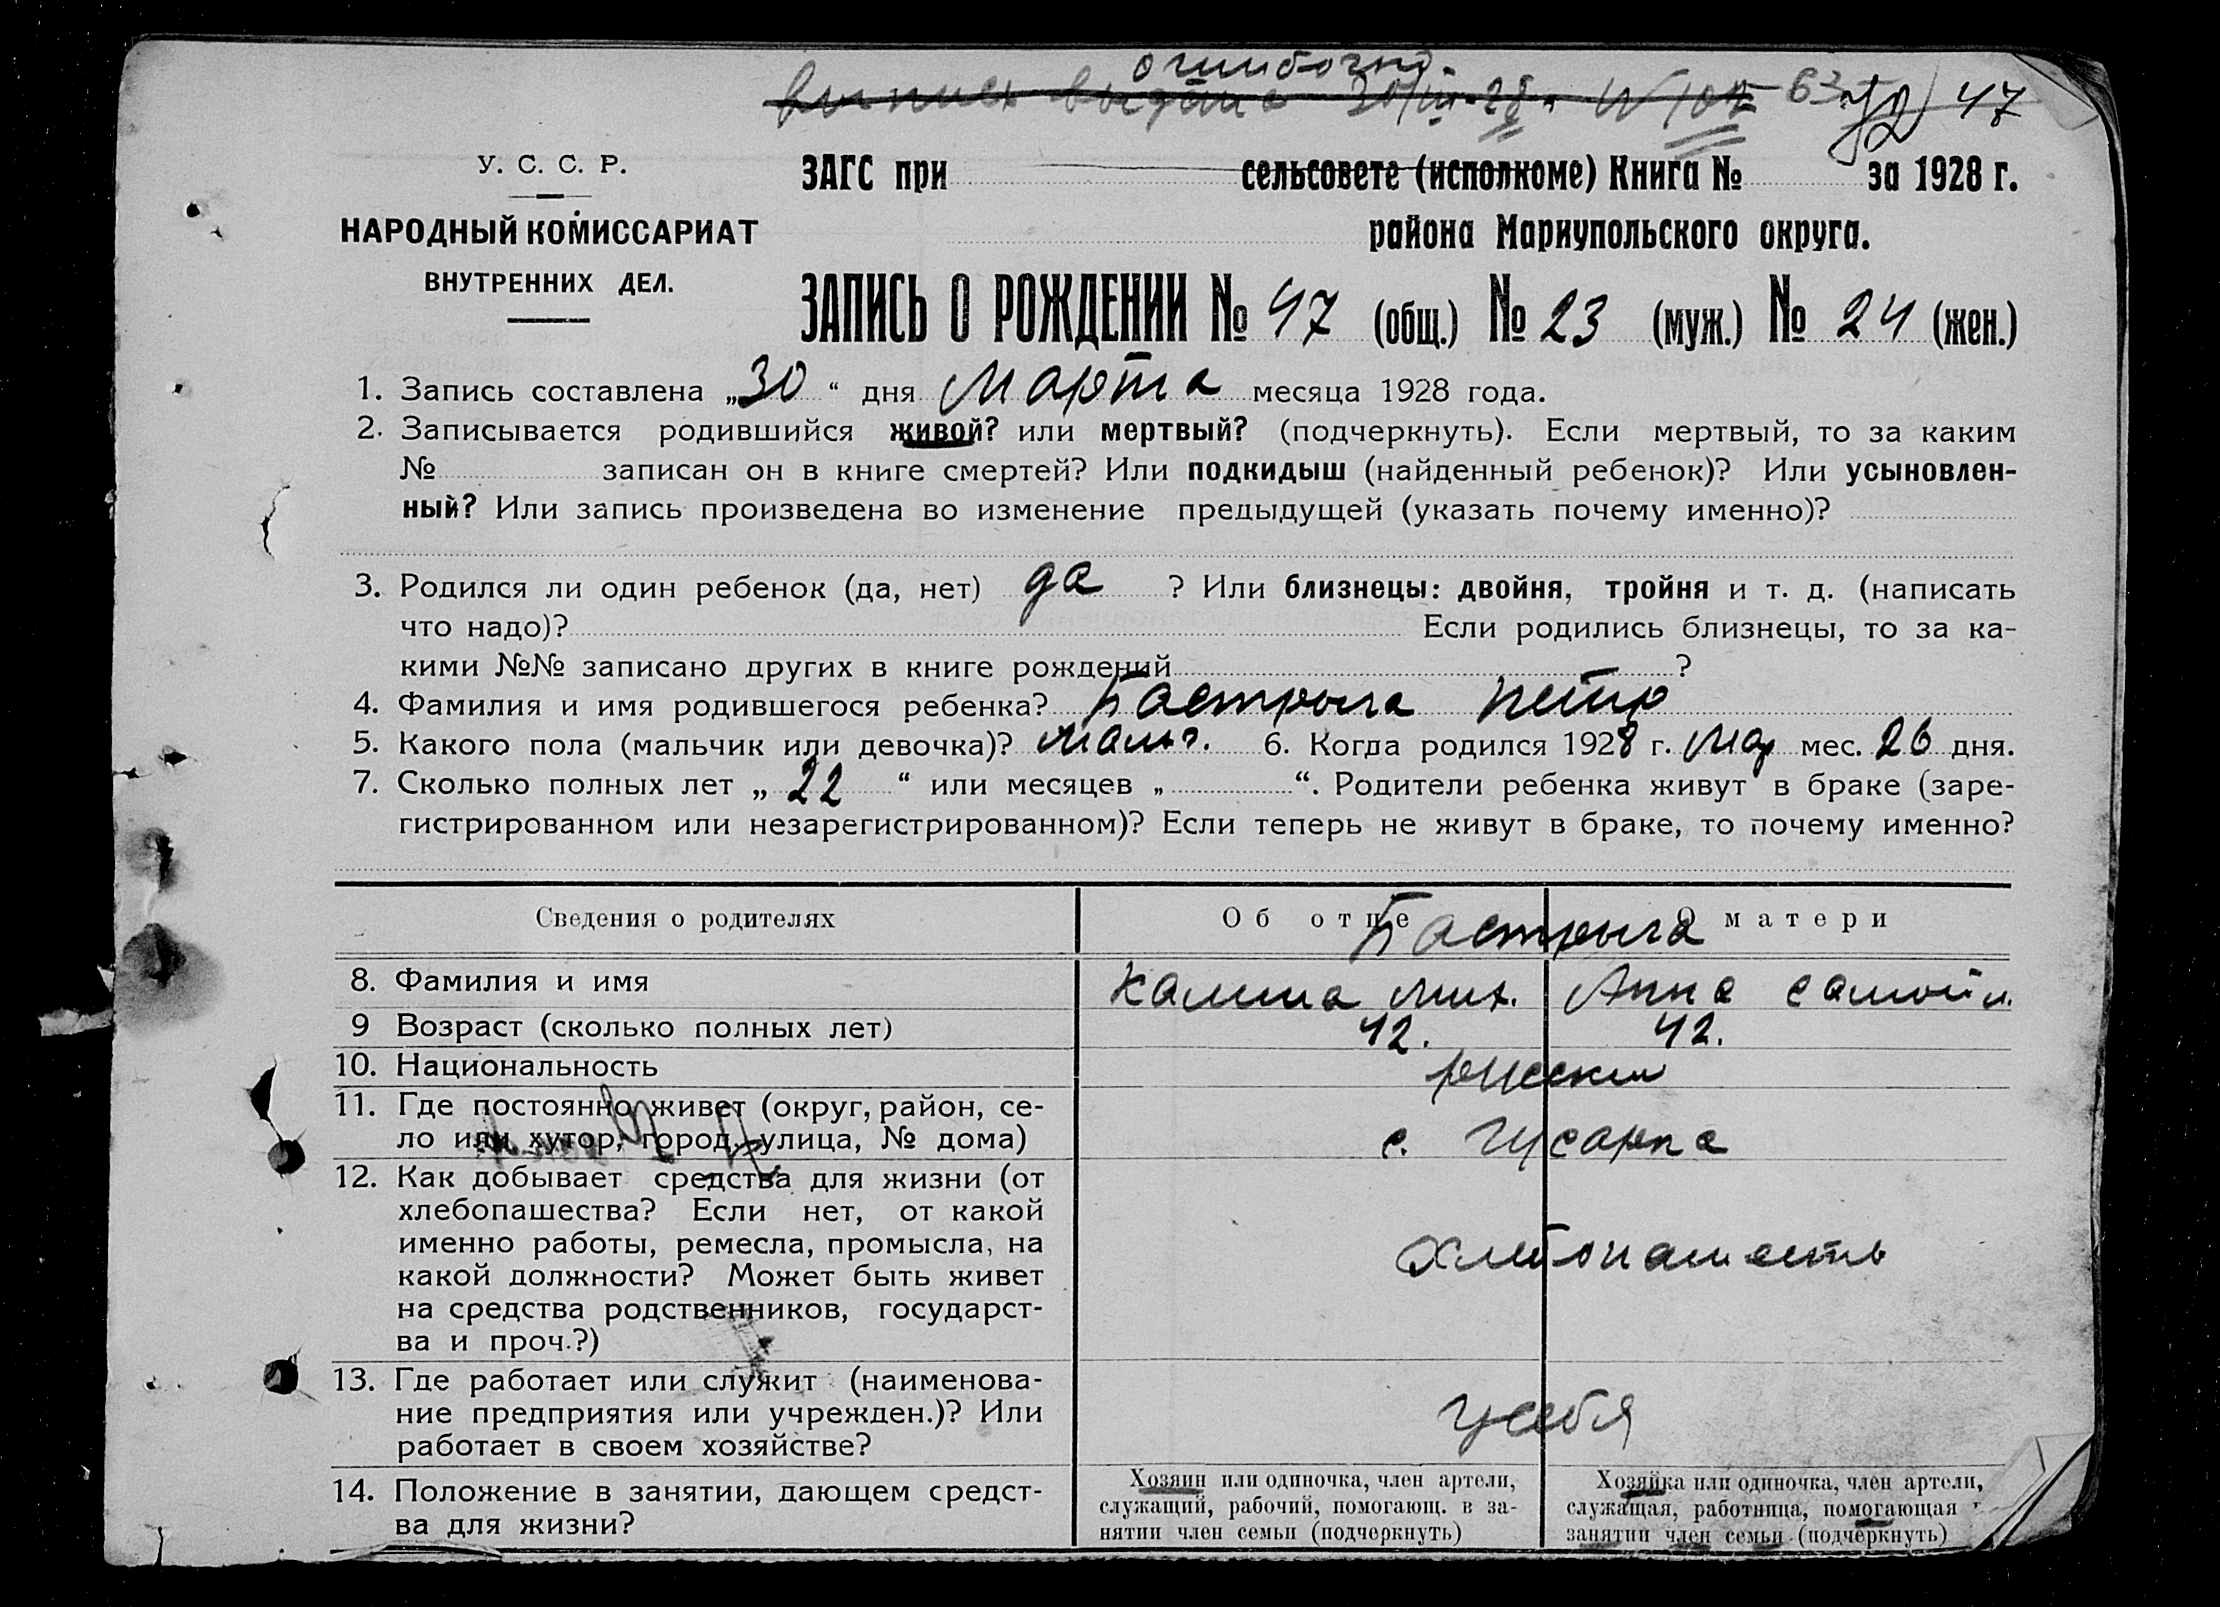 ошибочно.
выпись выдана 30/III-28 г. № 104 63 47
У. С. С. Р.
НАРОДНЫЙ КОМИССАРИАТ
ВНУТРЕННИХ ДЕЛ.
ЗАГС при сельсовете (исполкоме) Книга № за 1928 г.
района Мариупольского округа.
ЗАПИСЬ О РОЖДЕНИИ № 47 (общ.) № 23 (муж.) № 24 (жен.)
1. Запись составлена „30“ дня Марта месяца 1928 года.
2. Записывается родившийся живой? или мертвый? (подчеркнуть). Если мертвый, то за каким
№ записан он в книге смертей? Или подкидыш (найденный ребенок)? Или усыновлен-
ный? Или запись произведена во изменение предыдущей (указать почему именно)?
3. Родился ли один ребенок (да, нет) да ? Или близнецы: двойня, тройня и т. д. (написать
что надо)? Если родились близнецы, то за ка-
кими №№ записано других в книге рождений ?
4. Фамилия и имя родившегося ребенка? Бастрыга Петр
5. Какого пола (мальчик или девочка)? мальч. 6. Когда родился 1928 г. Мар мес. 26 дня.
7. Сколько полных лет „ 22 “ или месяцев „ “. Родители ребенка живут в браке (заре-
гистрированном или незарегистрированном)? Если теперь не живут в браке, то почему именно?
Сведения о родителях Об отце О матери
Бастрыга
8. Фамилия и имя Калина Мих. Анна Самойл.
9 Возраст (сколько полных лет) 42. 42.
10. Национальность русские
11. Где постоянно живет (округ, район, се-
ло или хутор, город, улица, № дома) с. Гусарка
12. Как добывает средства для жизни (от
хлебопашества? Если нет, от какой
именно работы, ремесла, промысла, на
какой должности? Может быть живет
на средства родственников, государст-
ва и проч.?)
хлебопашеств
13. Где работает или служит (наименова-
ние предприятия или учрежден.)? Или
работает в своем хозяйстве?
у себя
14. Положение в занятии, дающем средст-
ва для жизни?
Хозяин или одиночка, член артели,
служащий, рабочий, помогающ. в за-
нятии член семьи (подчеркнуть)
Хозяйка или одиночка, член артели,
служащая, работница, помогающая
занятии член семьи (подчеркнуть)